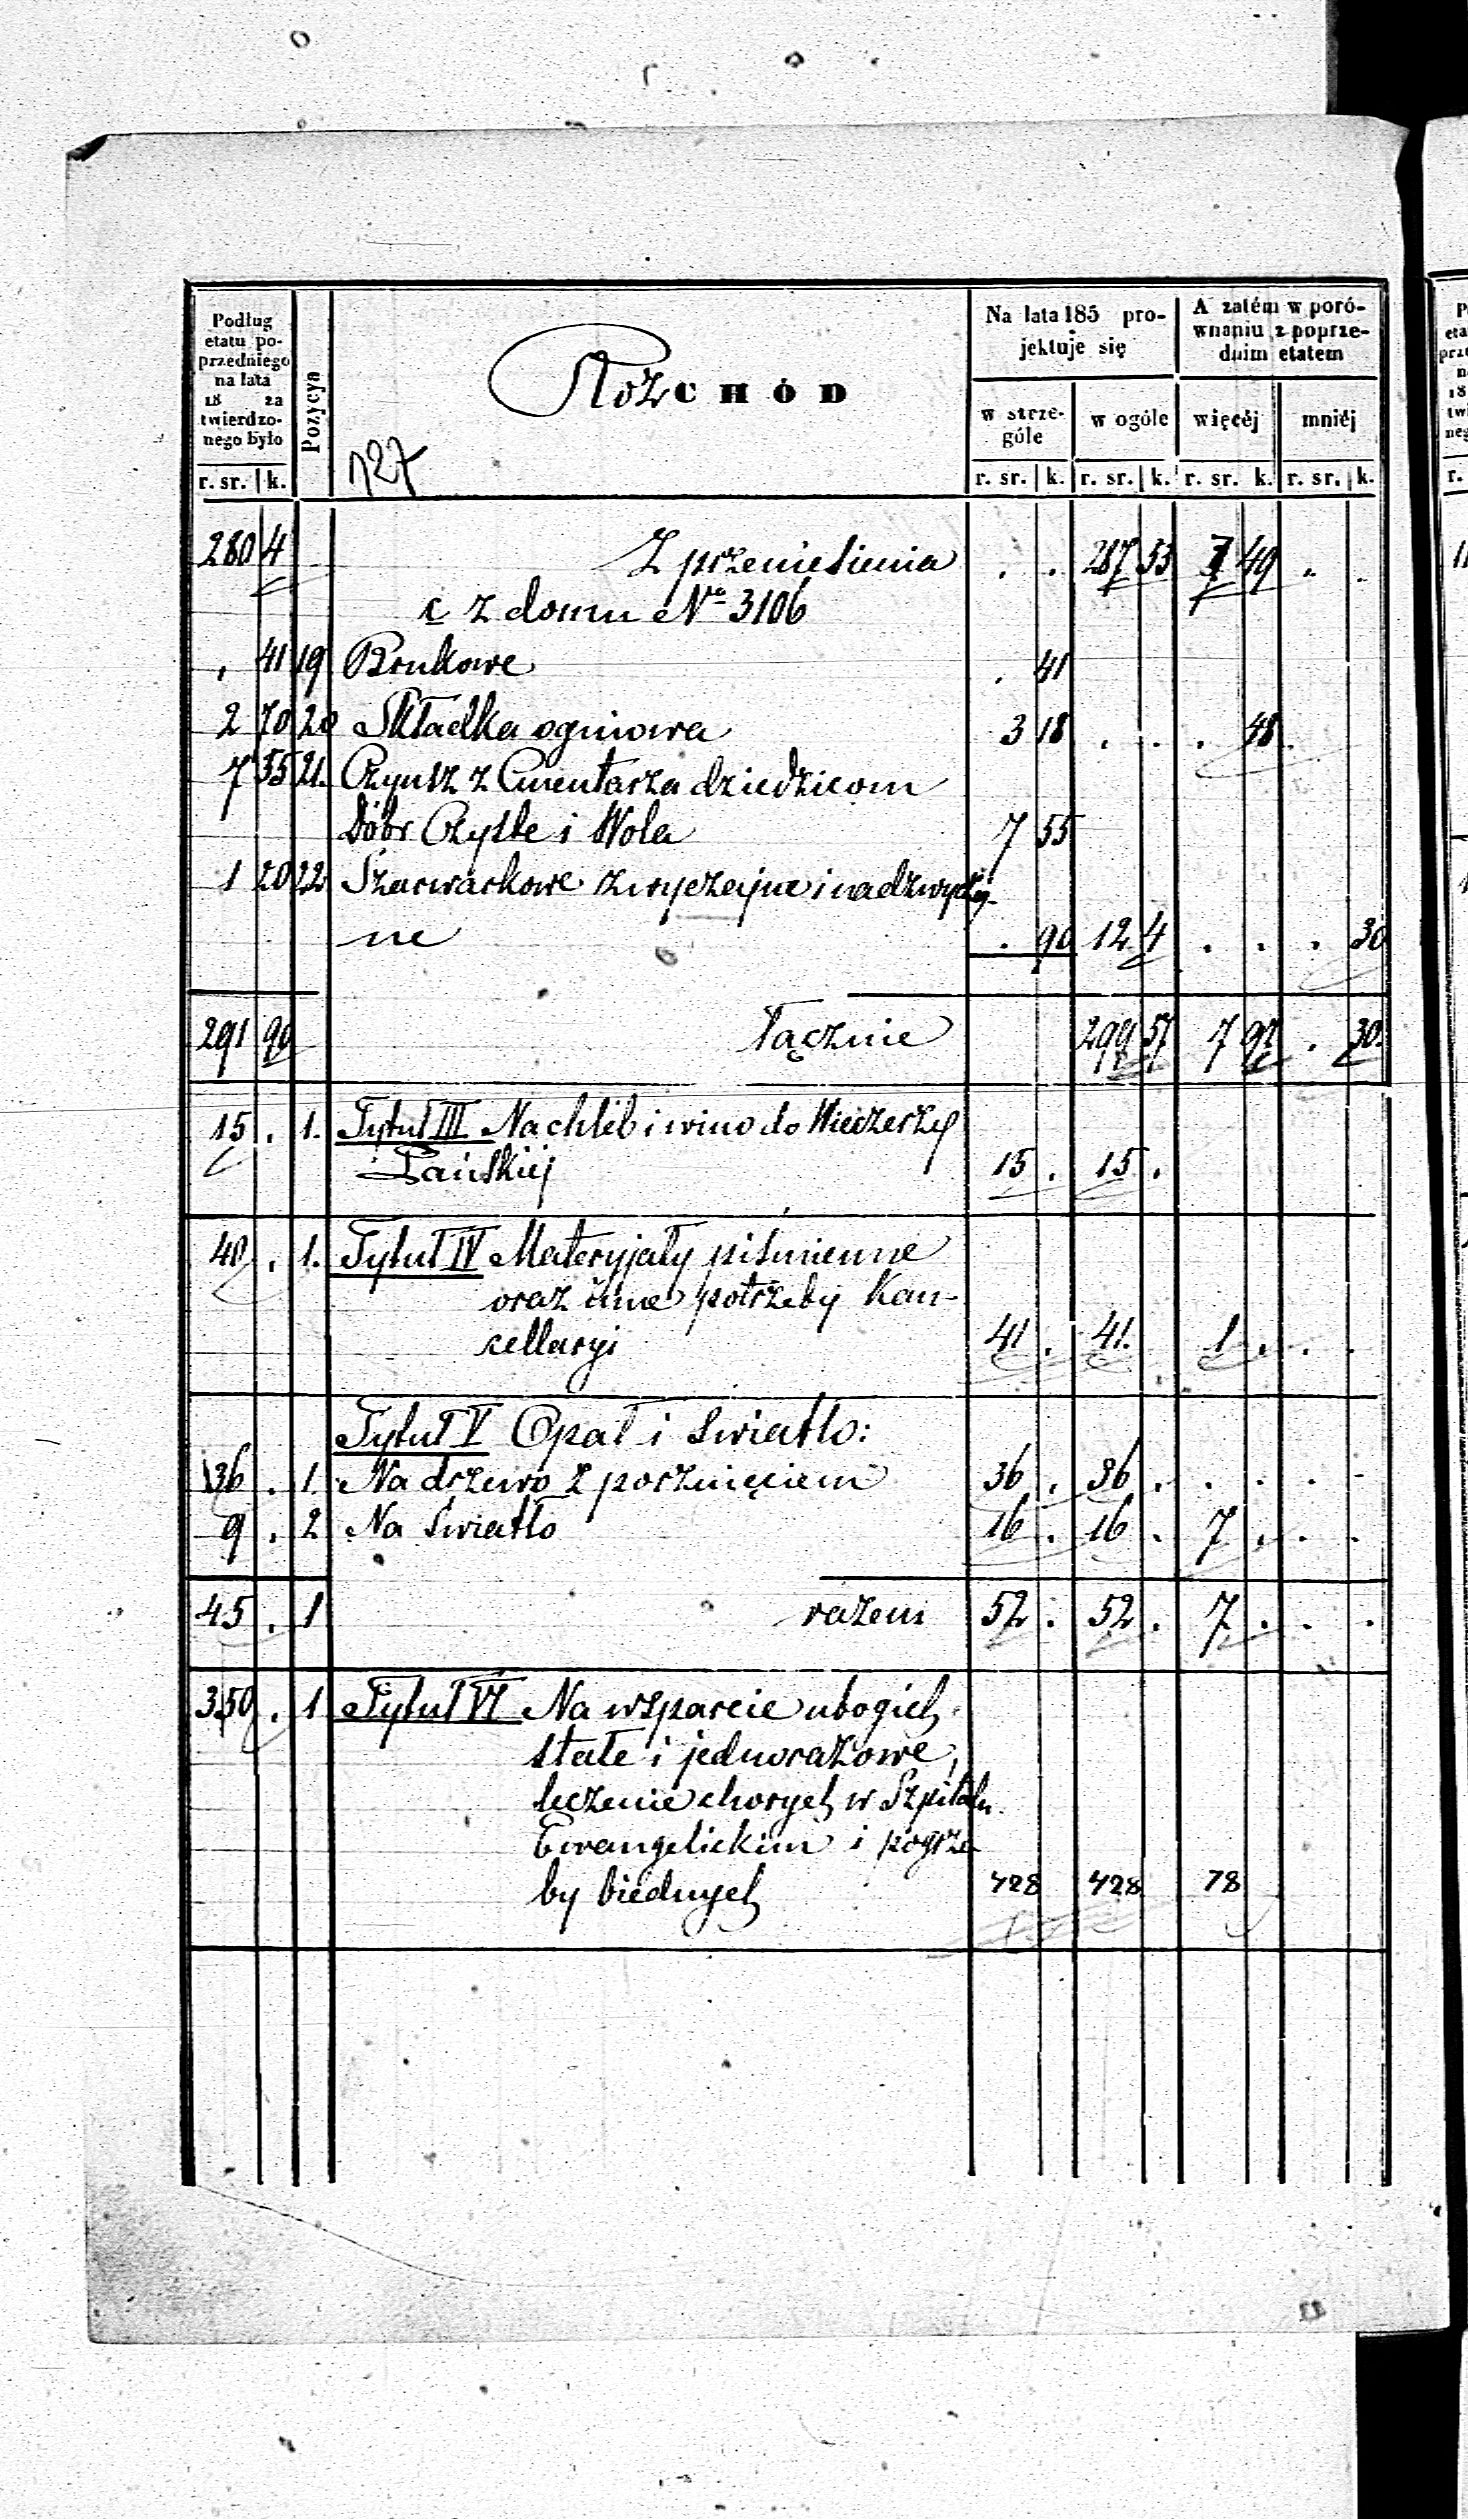 Podług etatu poprzedniego na lata 18 za twierdzonego było
Pozycya
RozCHÓD
127
Na lata 185 projektuje się
A zatém w porównaniu z poprzednim etatem
w szczególe
w ogóle
więcéj
mniéj
r. sr. k. r. sr. k. r. sr. k. r. sr. k. r. sr. k.
280 4 Z przeniesienia . . 287 53 7 49 . .
c z domu No 3106
. 41 19 Brukowe . 41
2 70 20 Składka ogniowa 3 18 . . . 48 .
7 55 21. Czynsz z Cmentarza dziedzicom
Dóbr Czyste i Wola 7 55
1 20 22 Szarwarkowe zwyczajne i nadzwyczaj-
ne . 90 12 4 . . . 30
291 90 łącznie 299 57 7 97 . 30.
15 . 1. Tytuł III Na chléb i wino do Wieczerzy
Pańskiéj 15 . 15 .
40 . 1. Tytuł IV Materyjały piśmienne
oraz inne potrzeby Kan-
cellaryi 41 . 41. 1 . . .
Tytuł V Opał i światło:
36 . 1. Na drzewo z porznięciem 36 . 36 . . . . .
9 . 2 Na światło 16 . 16 . 7 . . .
45 . 1 razem 52 . 52 . 7 . . .
350 . 1 Tytuł VI Na wsparcie ubogich
stałe i jednorazowe,
leczenie chorych w Szpitalu
Ewangelickim i pogrze
by biednych 428 428 78